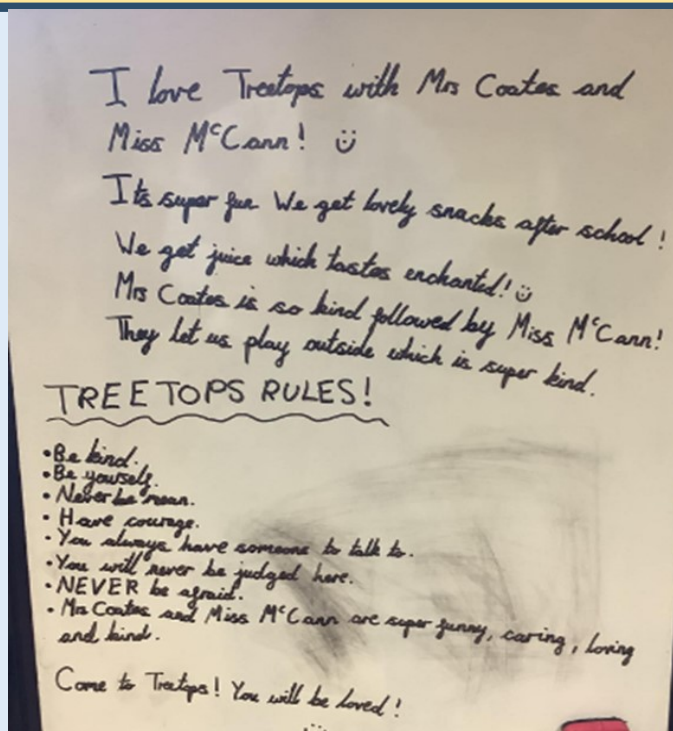 I love Treetops with Mrs Coates and
Miss McCann! ü
Its super fun We get lovely snacks after school!
We get juice which tastes enchanted! ü
Mrs Coates is so kind followed by Miss McCann!
They let us play outside which is super kind.
TREETOPS RULES!
• Be kind.
• Be yourself.
• Never be mean.
• Have courage.
• You always have someone to talk to.
• You will never be judged here.
• NEVER be afraid.
• Mrs Coates and Miss McCann are super funny, caring, loving
and kind.
Come to Treetops! You will be loved!